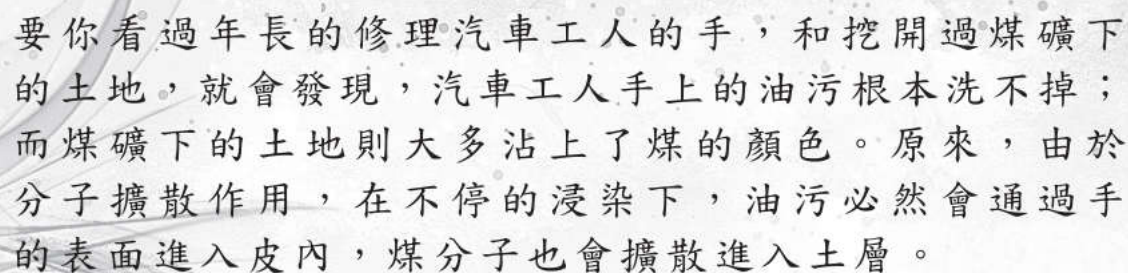 要你看過年長的修理汽車工人的手，和挖開過煤礦下
的土地，就會發現，汽車工人手上的油污根本洗不掉；
而煤礦下的土地則大多沾上了煤的顏色。原來，由於
分子擴散作用，在不停的浸染下，油污必然會通過手
的表面進入皮內，煤分子也會擴散進入土層。